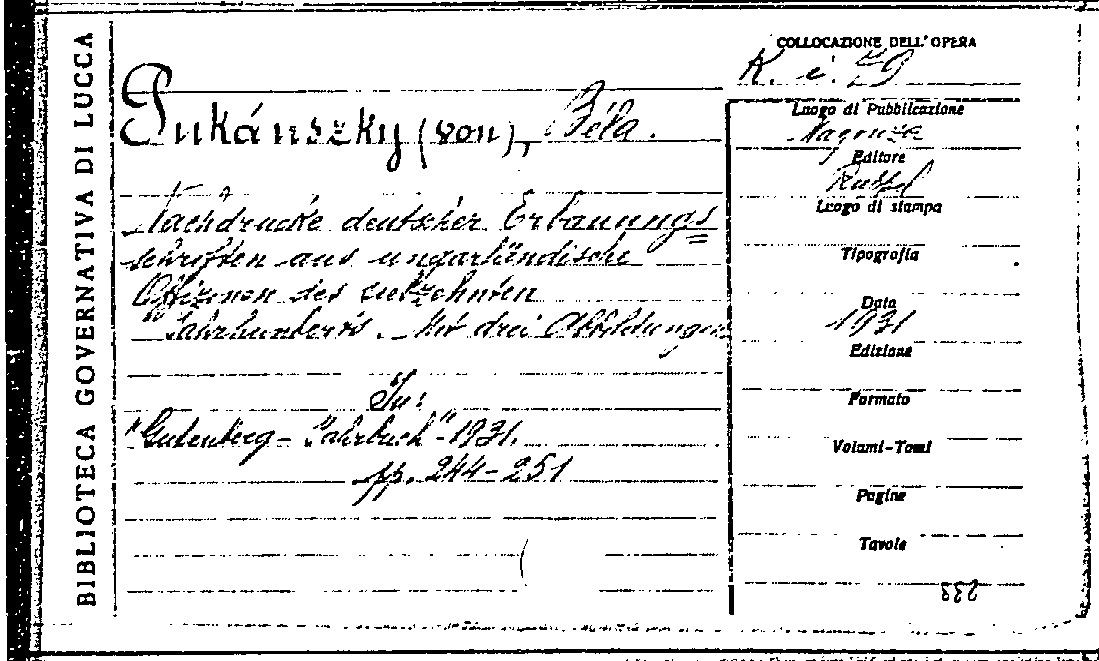 BIBLIOTECA GOVERNATIVA DI LUCCA
Pukánszky (von), Béla.
Nachdrucke deutscher Erbauungs=
schriften aus ungarländische
Offizenen des siebzehnten
Jahrhunderts. Mit drei Abbildungen
In:
"Gutenberg-Jahrbuch"-1931.
pp. 244-251
COLLOCAZIONE DELL' OPERA
K. i. 29
Luogo di Pubblicazione
Magonza
Editore
Luogo di stampa
Tipografia
Data
1931
Edizione
Formato
Volumi-Tomi
Pagine
Tavole